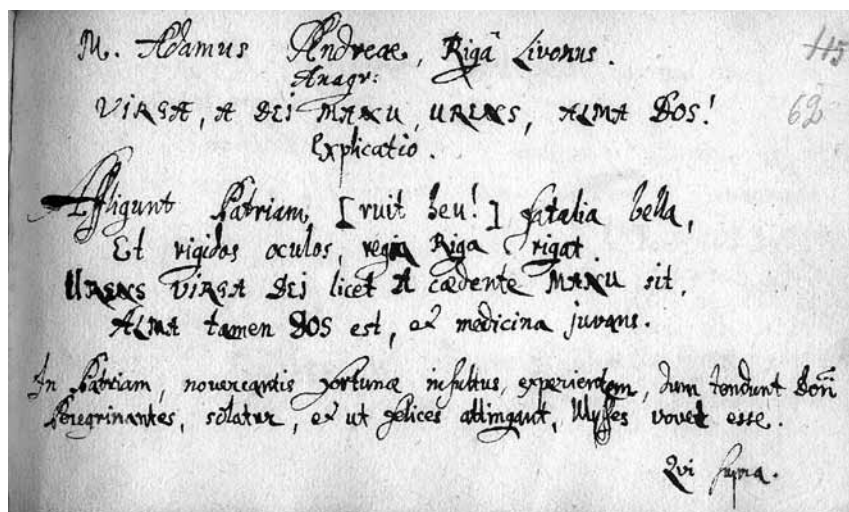 M. Adamus Andreae, Rigâ Livonus.
115
Anagr:
VIRGA, A DEI MANU, URENS, ALMA DOS!
62
Explicatio.
Affligunt Patriam, [ruit heu!] fatalia bella,
Et rigidos oculos, regia Riga rigat.
URENS VIRGA DEI licet A cædente MANU sit,
ALMA tamen DOS est, et medicina juvans.
In Patriam, novercantis fortunæ insultus, experientem, dum tendunt Dom̄
Peregrinantes, solatur, et ut felices attingant, Ulysses vovet esse.
Qvi supra.